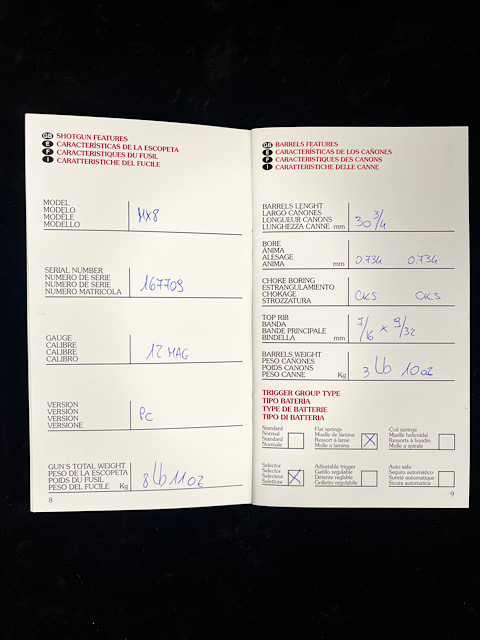 GB SHOTGUN FEATURES
E CARACTERÍSTICAS DE LA ESCOPETA
F CARACTERISTIQUES DU FUSIL
I CARATTERISTICHE DEL FUCILE
MODEL
MODELO
MODÈLE
MODELLO
MX8
SERIAL NUMBER
NUMERO DE SERIE
NUMERO DE SERIE
NUMERO MATRICOLA
167709
GAUGE
CALIBRE
CALIBRE
CALIBRO
12 MAG
VERSION
VERSIÓN
VERSION
VERSIONE
PC
GUN'S TOTAL WEIGHT
PESO DE LA ESCOPETA
POIDS DU FUSIL
PESO DEL FUCILE Kg
8 lb 11 oz
8
GB BARRELS FEATURES
E CARACTERÍSTICAS DE LOS CAÑONES
F CARACTERISTIQUES DES CANONS
I CARATTERISTICHE DELLE CANNE
BARRELS LENGHT
LARGO CAÑONES
LONGUEUR CANONS
LUNGHEZZA CANNE mm
30 3/4
BORE
ÁNIMA
ALESAGE
ANIMA mm
0.734 0.734
CHOKE BORING
ESTRANGULAMIENTO
CHOKAGE
STROZZATURA
CKS CKS
TOP RIB
BANDA
BANDE PRINCIPALE
BINDELLA mm
7/16 x 9/32
BARRELS WEIGHT
PESO CAÑONES
POIDS CANONS
PESO CANNE Kg
3 lb 10 oz
TRIGGER GROUP TYPE
TIPO BATERÍA
TYPE DE BATTERIE
TIPO DI BATTERIA
Standard
Normal
Standard
Normale
Flat springs
Muelle de lámina
Ressort à lame
Molle a lamina
X
Coil springs
Muelle helicoidal
Ressorts à boudin
Molle a spirale
Selector
Selector
Sélecteur
Selettore
X
Adjustable trigger
Gatillo regulable
Détente reglable
Grilletto regolabile
Auto safe
Seguro automático
Sureté automatique
Sicura automatica
9